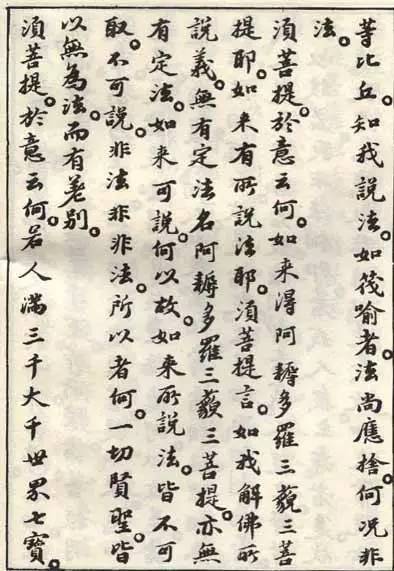 等比丘。知我說法。如筏喻者。法尚應捨。何况非
法。
須菩提。於意云何。如来得阿耨多羅三藐三菩
提耶。如来有所說法耶。須菩提言。如我解佛所
說義。無有定法名阿耨多羅三藐三菩提。亦無
有定法。如来可說。何以故。如来所說法。皆不可
取。不可說。非法非非法。所以者何。一切賢聖。皆
以無為法。而有差别。
須菩提。於意云何。若人滿三千大千世界七寶。